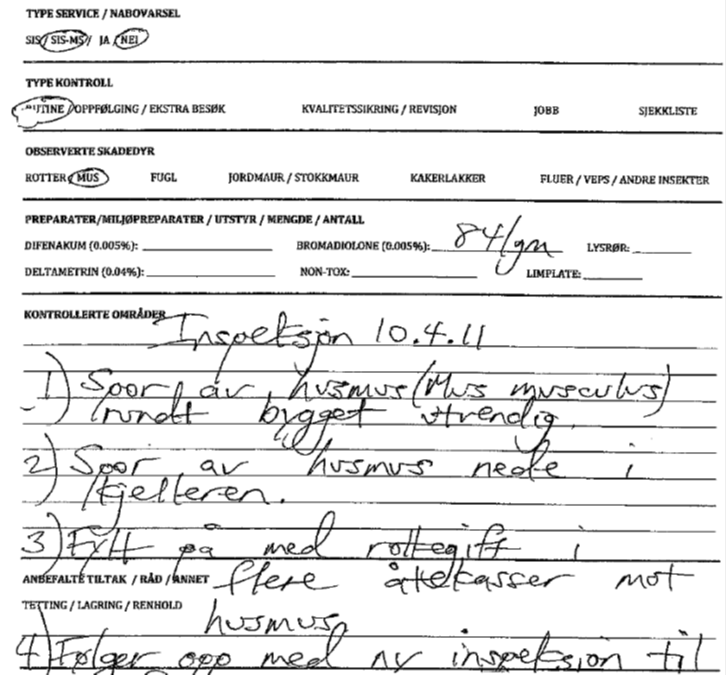 TYPE SERVICE / NABOVARSEL
SIS / SIS-MS / JA / NEI
TYPE KONTROLL
RUTINE / OPPFØLGING / EKSTRA BESØK KVALITETSSIKRING / REVISJON JOBB SJEKKLISTE
OBSERVERTE SKADEDYR
ROTTER / MUS FUGL JORDMAUR / STOKKMAUR KAKERLAKKER FLUER / VEPS / ANDRE INSEKTER
PREPARATER/MILJØPREPARATER / UTSTYR / MENGDE / ANTALL
DIFENAKUM (0.005%): BROMADIOLONE (0.005%): 84/gm LYSRØR:
DELTAMETRIN (0.04%): NON-TOX: LIMPLATE:
KONTROLLERTE OMRÅDER
Inspeksjon 10.4.11
1) Spor av husmus (Mus musculus)
rundt bygget utvendig.
2) Spor av husmus nede i
kjelleren.
3) Fylt på med rottegift i
ANBEFALTE TILTAK / RÅD / ANNET flere åtekasser mot
TETTING / LAGRING / RENHOLD
husmus.
4) Følger opp med ny inspeksjon til